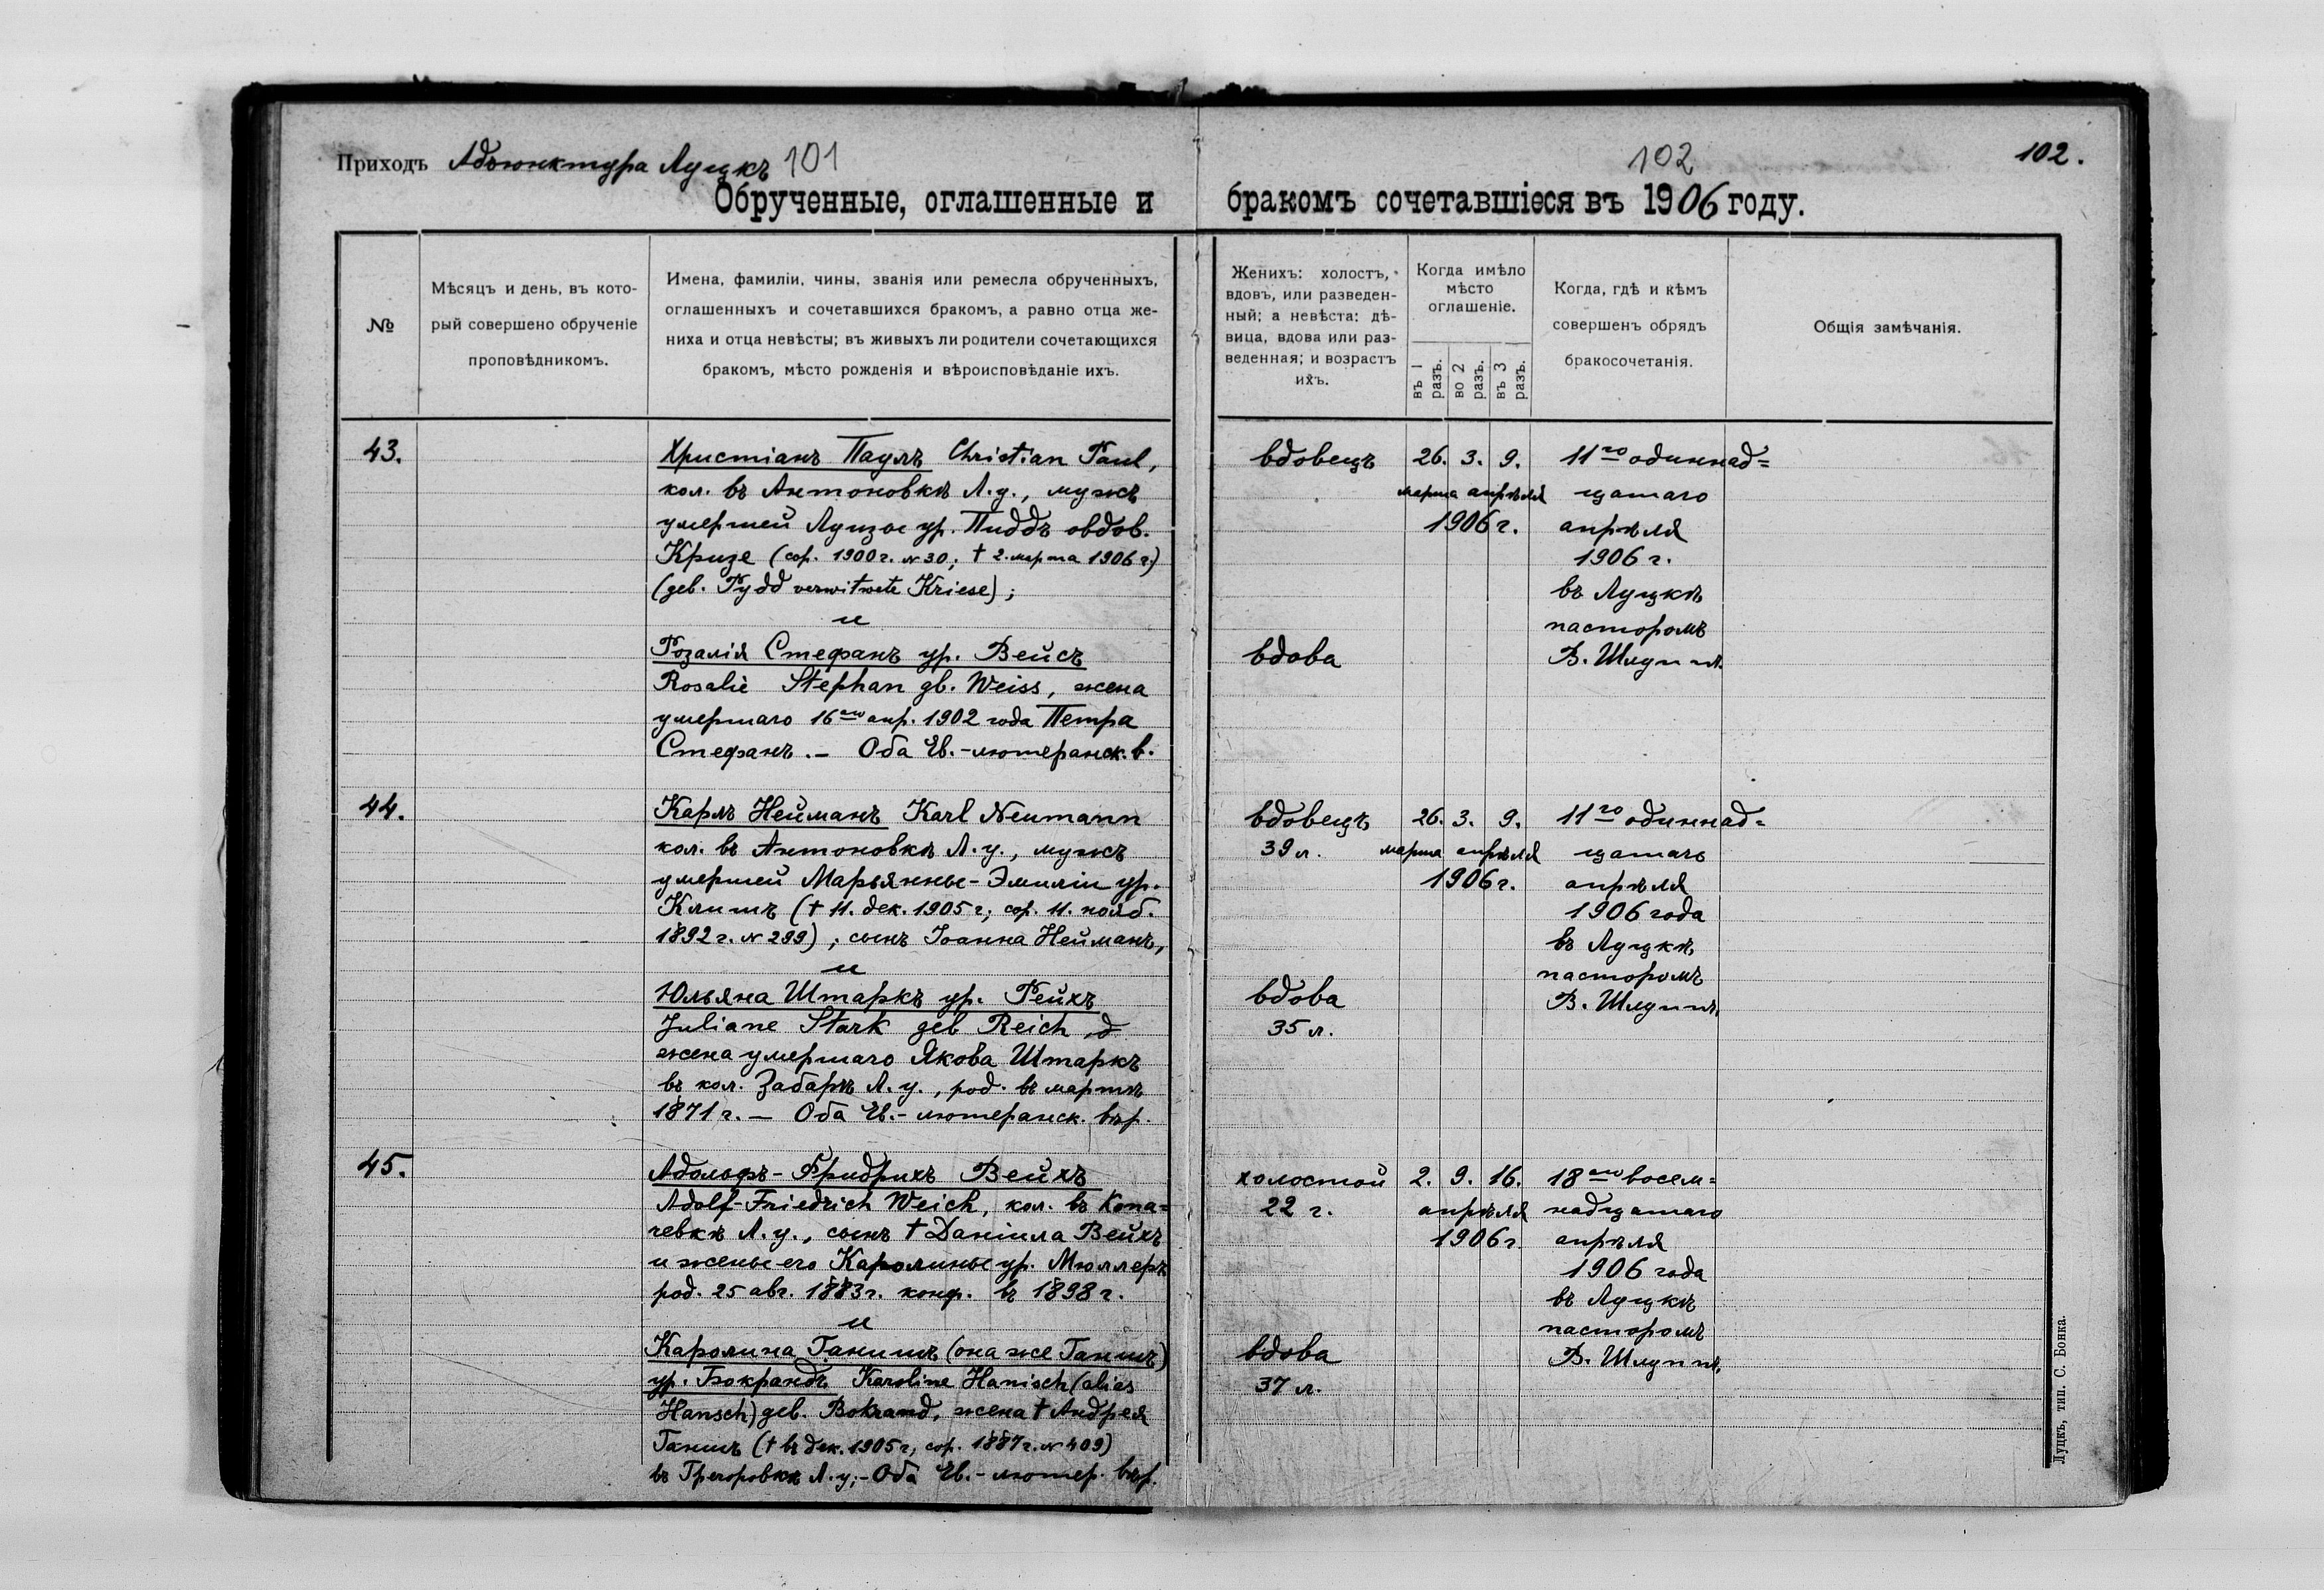 Приходъ Адъюнктура Луцкъ 101
102
102.
Обрученные, оглашенные и бракомъ сочетавшіеся въ 1906 году.
№
Мѣсяцъ и день, въ кото-
рый совершено обрученіе
проповѣдникомъ.
Имена, фамиліи, чины, званія или ремесла обрученныхъ,
оглашенныхъ и сочетавшихся бракомъ, а равно отца же-
ниха и отца невѣсты; въ живыхъ ли родители сочетающихся
бракомъ, мѣсто рожденія и вѣроисповѣданіе ихъ.
Женихъ: холостъ,
вдовъ, или разведен-
ный; а невѣста: дѣ-
вица, вдова или раз-
веденная; и возрастъ
ихъ.
Когда имѣло
мѣсто
оглашеніе.
въ 1
разъ.
во 2
разъ.
въ 3
разъ.
Когда, гдѣ и кѣмъ
совершенъ обрядъ
бракосочетанія.
Общія замѣчанія.
43.
Христіанъ Паулъ Christian Paul,
кол. въ Антоновкѣ Л.у., мужъ
умершей Луизы ур. Пиддъ овдов.
Кризе (сор. 1900 г. №30; † 2. марта 1906 г.)
(geb. Pydd verwitwete Kriese);
и
Розалія Стефанъ ур. Вейсъ
Rosalie Stephan gb. Weiss, жена
умершаго 16го апр. 1902 года Петра
Стефанъ. – Оба Ев.-лютеранск. в.
вдовецъ
вдова
26. 3. 9.
марта апрѣля
1906 г.
11го одиннад=
цатаго
апрѣля
1906 г.
въ Луцкѣ
пасторомъ
В. Шлуппъ
44.
Карлъ Нейманъ Karl Neumann
кол. въ Антоновкѣ Л.у., мужъ
умершей Марьянны-Эмиліи ур.
Климъ († 11. дек. 1905 г; сор. 11. нояб.
1892 г. №299); сынъ Іоанна Нейманъ,
и
Юльяна Штаркъ ур. Рейхъ
Juliane Stark geb Reich, д
жена умершаго Якова Штаркъ
въ кол. Забарѣ Л.у., род. въ мартѣ
1871 г. – Оба Ев.-лютеранск. вѣр.
вдовецъ
39 л.
вдова
35 л.
26. 3. 9.
марта апрѣля
1906 г.
11го одиннад=
цатаго
апрѣля
1906 года
въ Луцкѣ
пасторомъ
В. Шлуппъ
45.
Адольфъ-Фридрихъ Вейхъ
Adolf-Friedrich Weich, кол. въ Копа=
чевкѣ Л.у., сынъ † Даніила Вейхъ
и жены его Каролины ур. Мюллеръ
род. 25 авг. 1883 г. конф. въ 1898 г.
и
Каролина Ганишъ (она же Ганшъ)
ур. Бокрандъ Karoline Hanisch (alias
Hansch) geb. Bokrand, жена † Андрея
Ганшъ († въ дек. 1905 г, сор. 1887 г. №409)
въ Грегоровкѣ Л.у; – Оба Ев.-лютер. вѣр.
холостой
22 г.
вдова
37 л.
2. 9. 16.
апрѣля
1906 г.
18го восем=
надцатаго
апрѣля
1906 года
въ Луцкѣ
пасторомъ
В. Шлуппъ
Луцкъ, тип. С. Бонка.